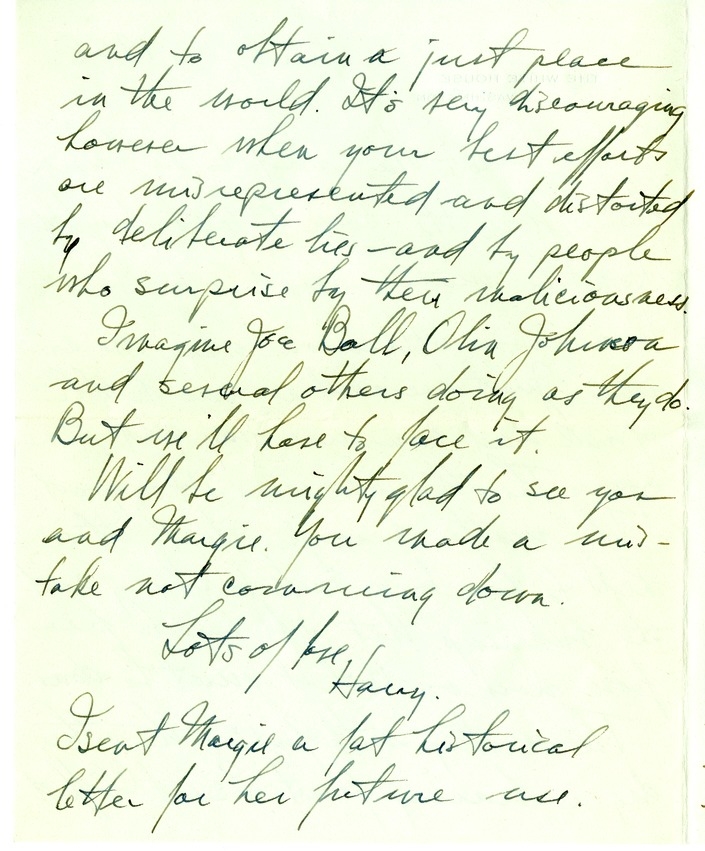 and to obtain a just peace
in the world. It's very discouraging
however when your best efforts
are misrepresented and distorted
by deliberate lies - and by people
who surprise by their maliciousness.
Imagine Joe Ball, Olin Johnson
and several others doing as they do.
But we'll have to face it.
Will be mighty glad to see you
and Margie. You made a mis-
take not comming down.
Lots of love,
Harry.
I sent Margie a fat historical
letter for her future use.